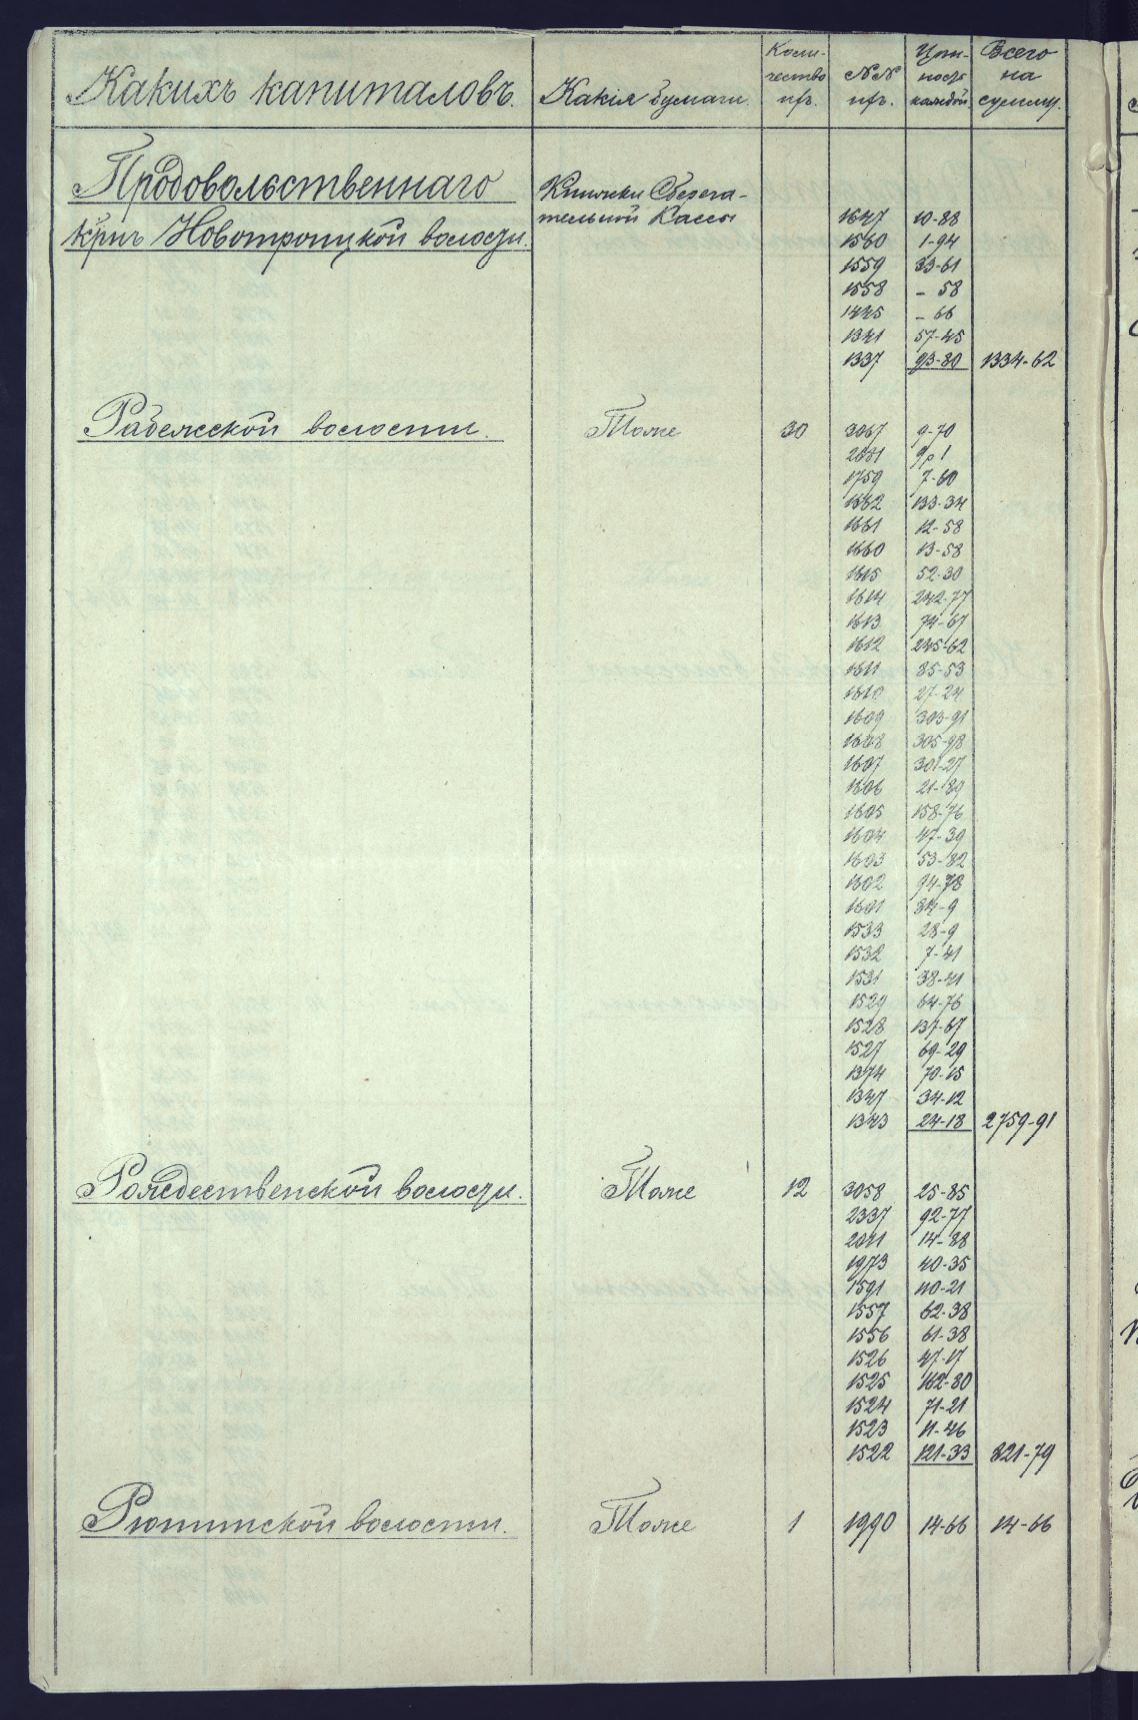 Какихъ капиталовъ. Какія бумаги. Коли- чество №№ Цѣн- ность каждой Всего на сумму.
Продовольственнаго Книжки Сберега-
тельной Кассы 1647 10-88
Новотроицкой волости. 1560 1-94
1559 33-61
1558 – 58
1445 – 66
1341 57-45
1337 93-80 1334-62
Рабежской волости. Тоже 30 3067 9-70
2881
1759 7-60
1662 133-34
1661 12-58
1660 13-58
1615 52-30
1614 242-77
1613 74-67
1612 245-62
1611 85-53
1610 27-24
1609 303-91
1608 305-98
1607 301-27
1606 21-89
1605 158-76
1604 47-39
1603 53-82
1602 94-78
1601 84-9
1533 28-9
1532 7-41
1531 38-41
1529 64-76
1528 137-67
1527 69-29
1374 70-15
1347 34-12
1343 24-18 2759-91
Рождественской волости. Тоже 12 3058 25-85
2337 92-77
2041 14-88
1973 40-35
1591 110-21
1557 62-38
1556 61-38
1526 47-17
1525 162-80
1524 71-21
1523 11-46
1522 121-33 821-79
Рютинской волости. Тоже 1 1990 14-66 14-66